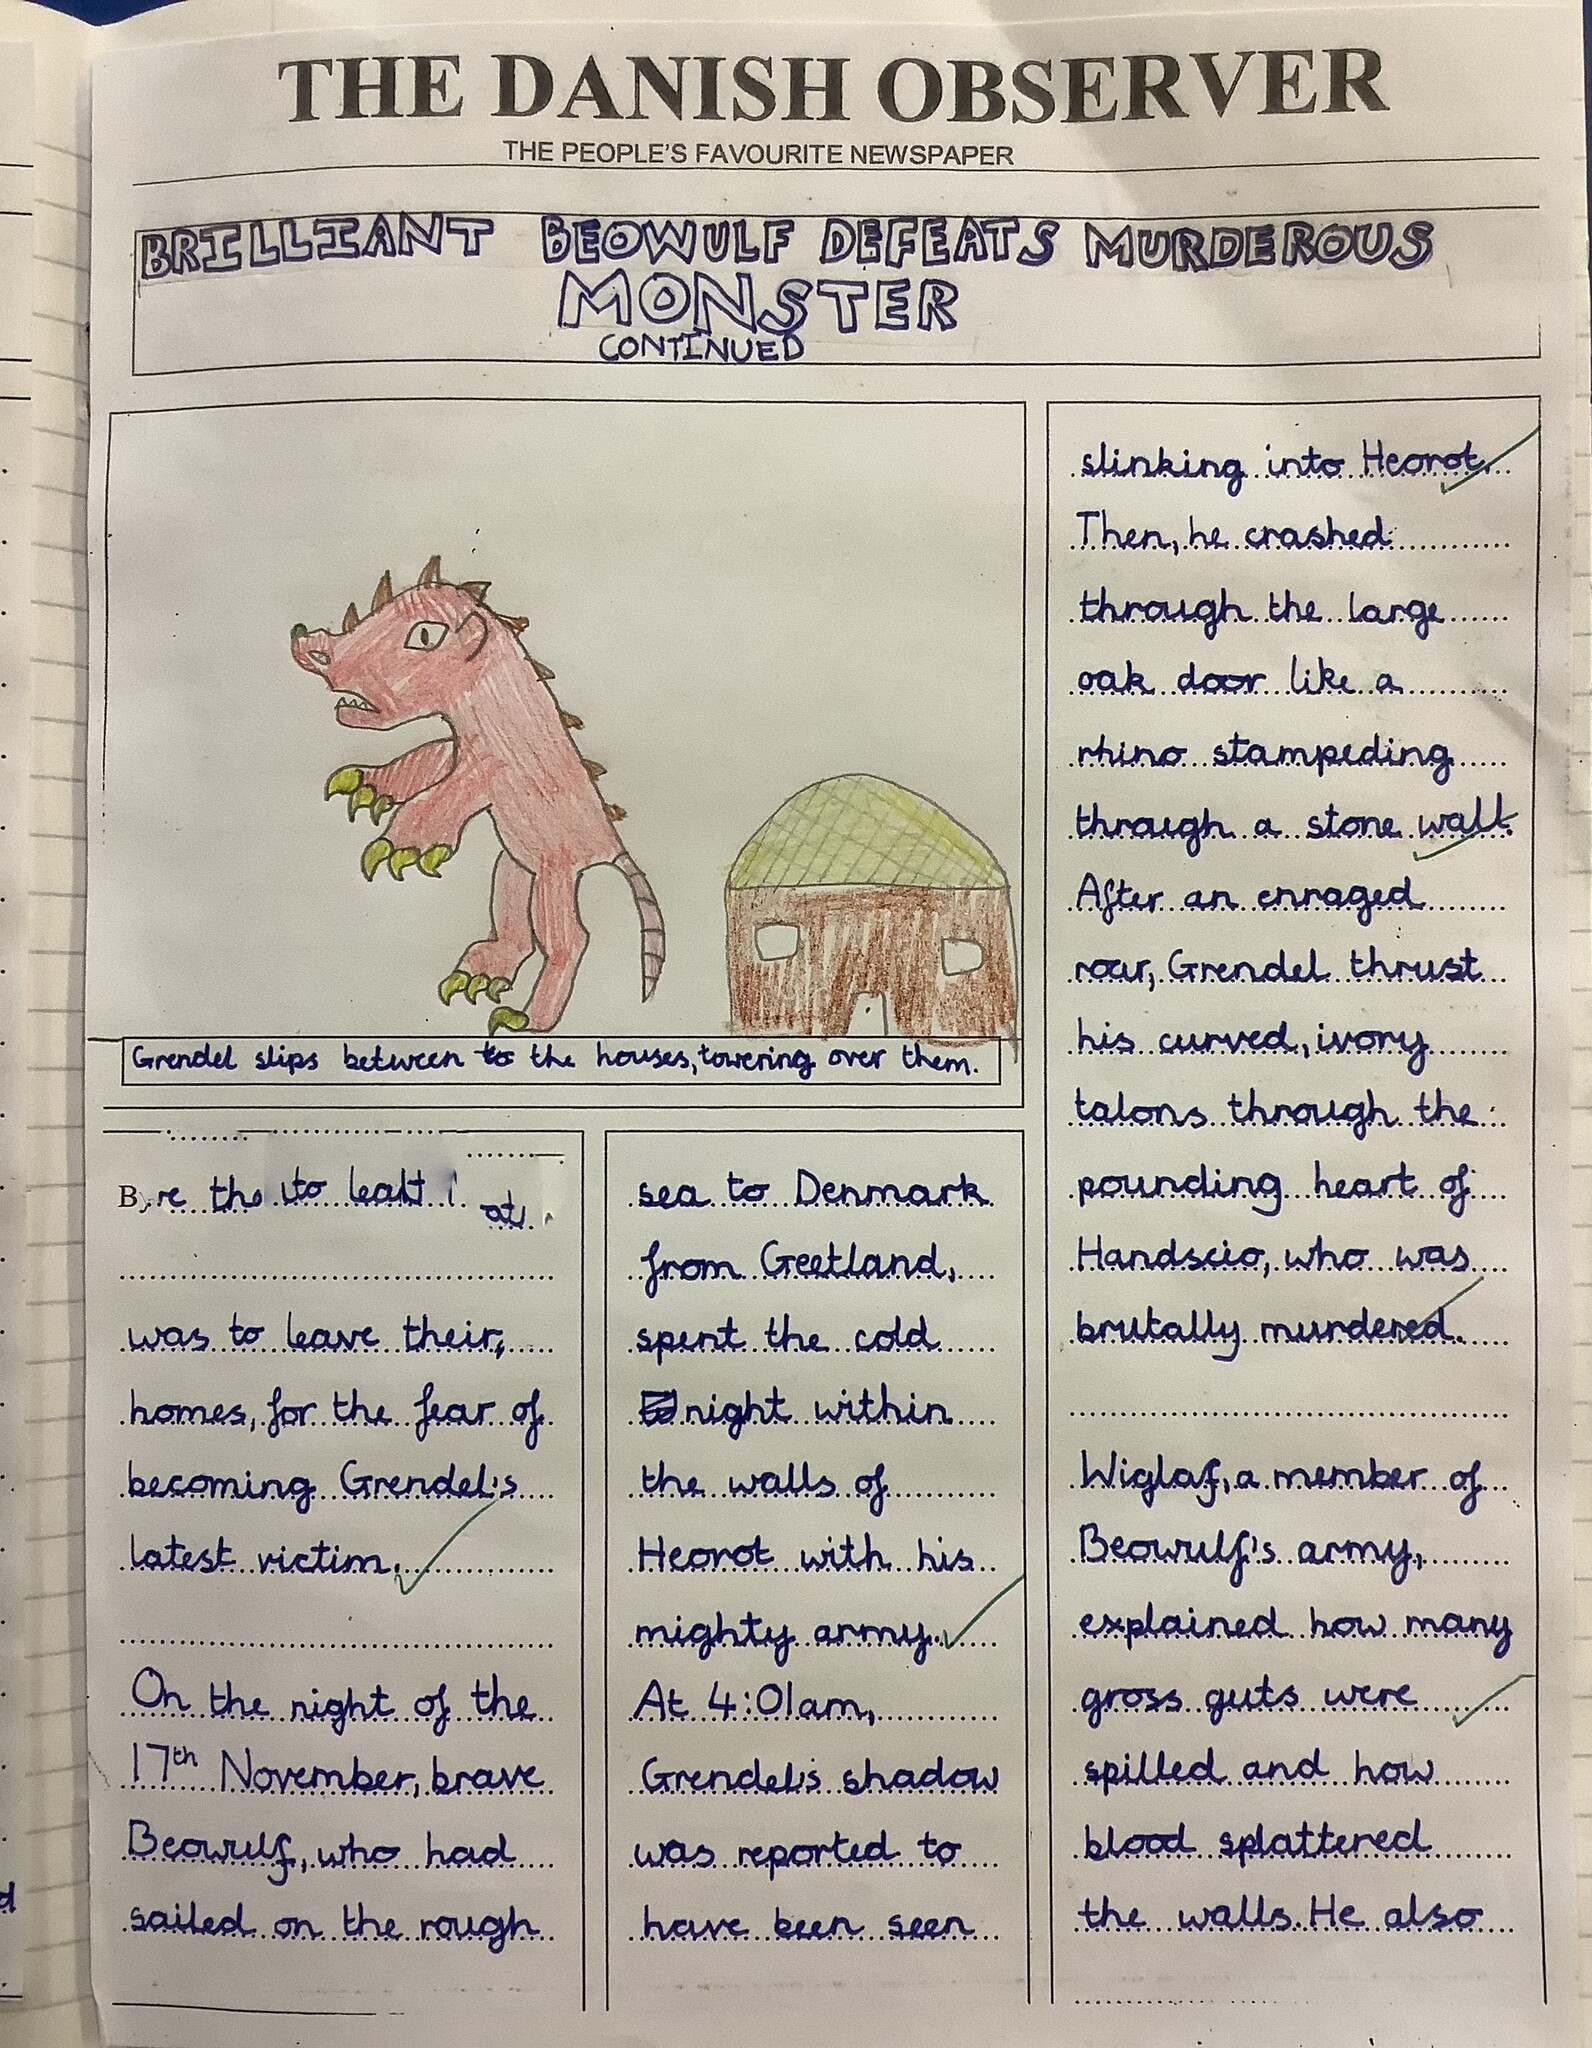 THE DANISH OBSERVER
THE PEOPLE'S FAVOURITE NEWSPAPER
BRILLIANT BEOWULF DEFEATS MURDEROUS
MONSTER
CONTINUED
Grendel slips between to the houses, towering over them.
was to leave their,
homes, for the fear of
becoming Grendel's
latest victim.
On the night of the
17th November, brave
Beowulf, who had
sailed on the rough
sea to Denmark
from Geetland,
spent the cold
night within
the walls of
Heorot with his
mighty army.
At 4:01am,
Grendel's shadow
was reported to
have been seen
slinking into Heorot.
Then, he crashed
through the large
oak door like a
rhino stampeding
through a stone wall.
After an enraged
roar, Grendel thrust
his curved, ivory
talons through the
pounding heart of
Handscio, who was
brutally murdered.
Wiglaf, a member of
Beowulf's army,
explained how many
gross guts were
spilled and how
blood splattered
the walls. He also